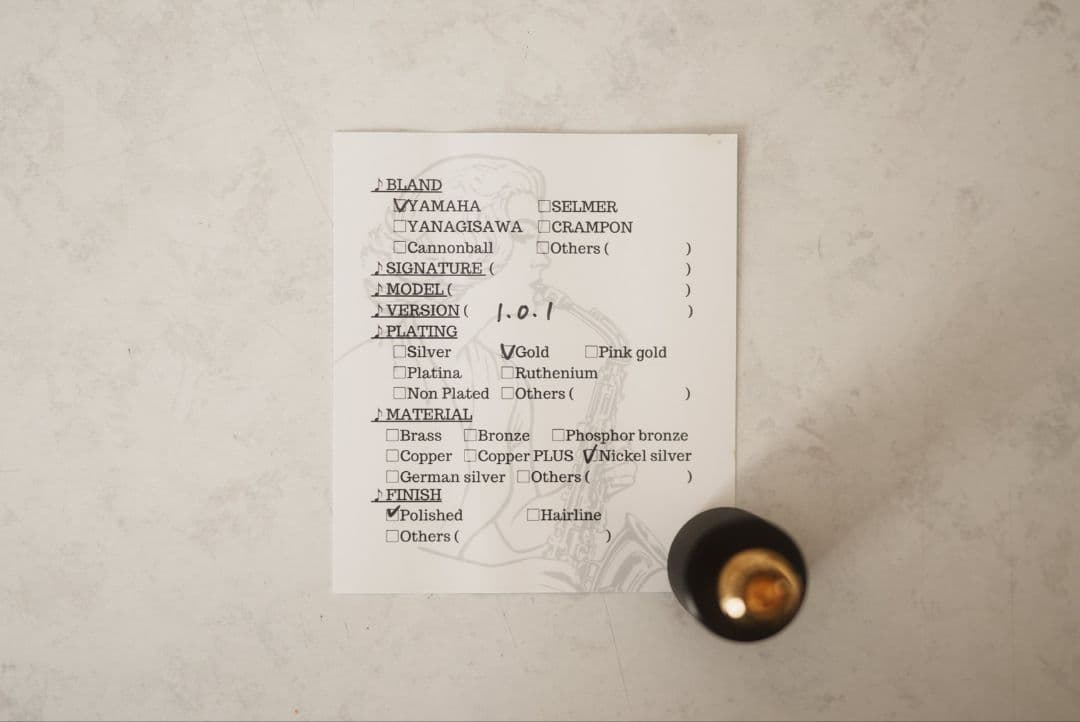 ♪BLAND
☑YAMAHA ☐SELMER
☐YANAGISAWA ☐CRAMPON
☐Cannonball ☐Others ( )
♪SIGNATURE ( )
♪MODEL ( )
♪VERSION ( 1.0.1 )
♪PLATING
☐Silver ☑Gold ☐Pink gold
☐Platina ☐Ruthenium
☐Non Plated ☐Others ( )
♪MATERIAL
☐Brass ☐Bronze ☐Phosphor bronze
☐Copper ☐Copper PLUS ☑Nickel silver
☐German silver ☐Others ( )
♪FINISH
☑Polished ☐Hairline
☐Others ( )